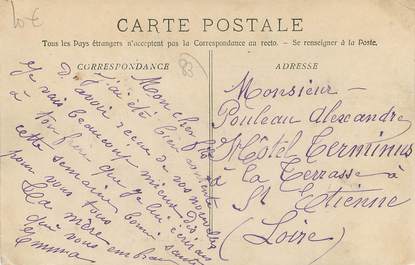 10 €
CARTE POSTALE
Tous les Pays étrangers n'acceptent pas la Correspondance au recto. — Se renseigner à la Poste.
CORRESPONDANCE
83
ADRESSE
Mon cher fils
J'ai été bien contente
d'avoir reçue de vos nouvelles
Je vais beaucoup mieux dis
à ton frère que je lui écrirai
cette semaine bonne santé
pour vous tous
Ta mère
qui vous embrasse
Emma
Monsieur
Pouleau Alexandre
Hôtel Terminus
à La Terrasse à
St Etienne
(Loire)